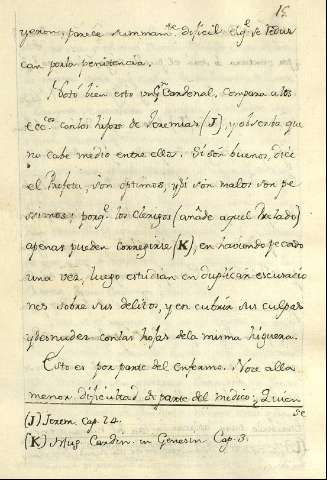 15
yeron, parece summam.te dificil el q.e se reduz
can por la penitencia.
Notó bien esto un g.n Cardenal, compara a los
ecc.cos con los higos de Jeremias (J), y observa que
no cabe medio entre ellos. Si són buenos, dice
el Profeta, són optimos, y si són malos son pe
simos; porq.e los Clerigos (añade aquel Prelado)
apenas pueden corregirse (K), en haviendo pecado
una vez, luego estudian en duplicar escusacio
nes sobre sus delitos, y en cubrir sus culpas
y desnudez con las hojas de la misma higuera.
Esto es por parte del enfermo. No ce alla
menor dificultad de parte del medico; Quien
se
(J) Jerem. Cap. 24.
(K) Hug. Cardin. in Genesin Cap. 3.